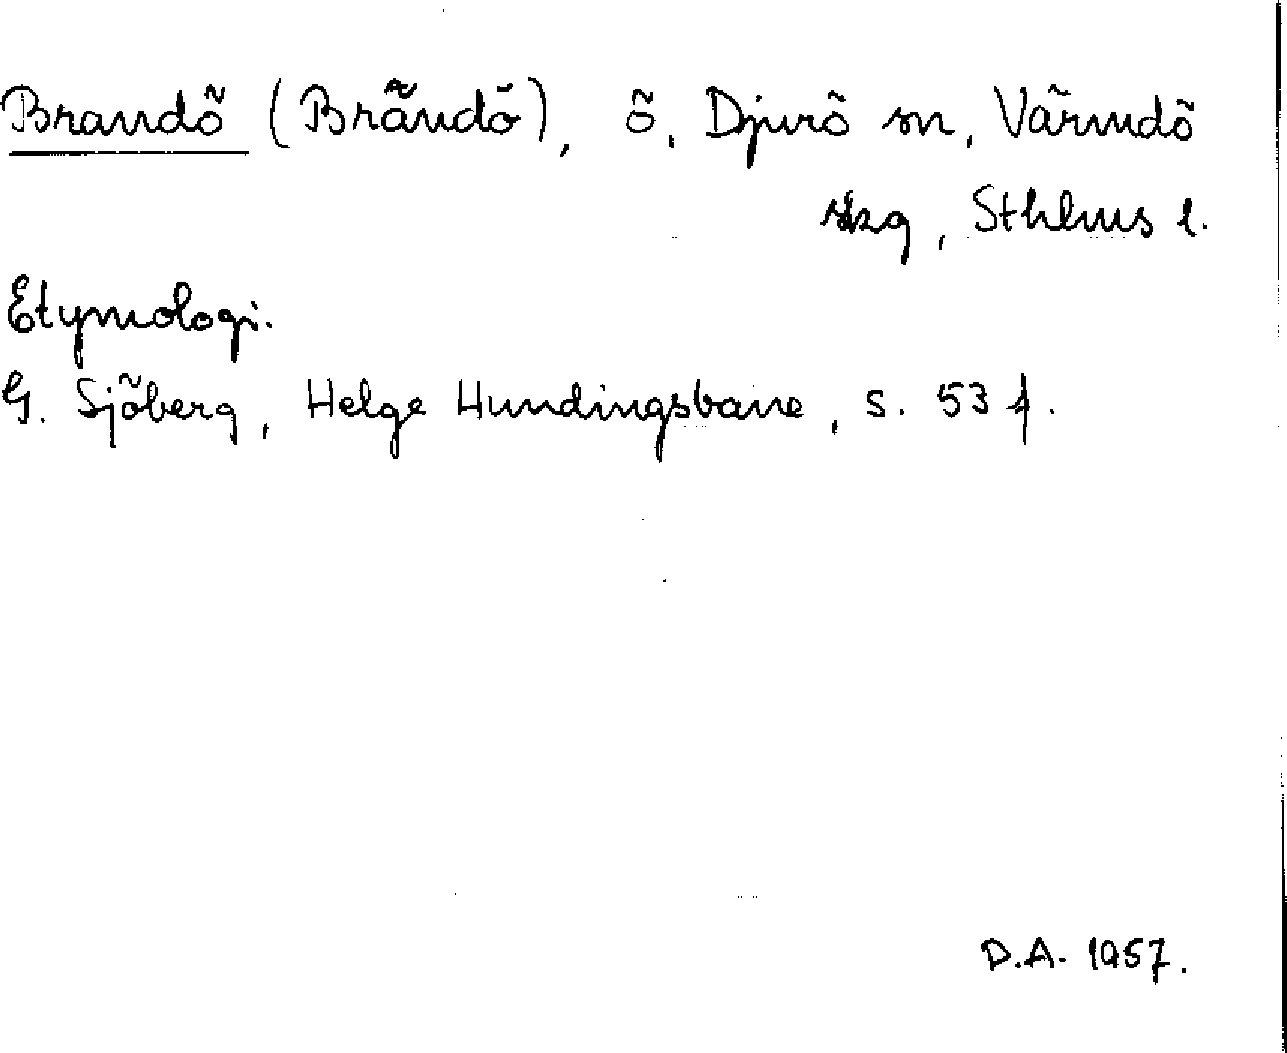 Brandö (Brändö), ö, Djurö sn, Värmdö
skg, Sthlms l.
Etymologi.
G. Sjöberg, Helge Hundingsbane, s. 53 f.
D.A. 1957.